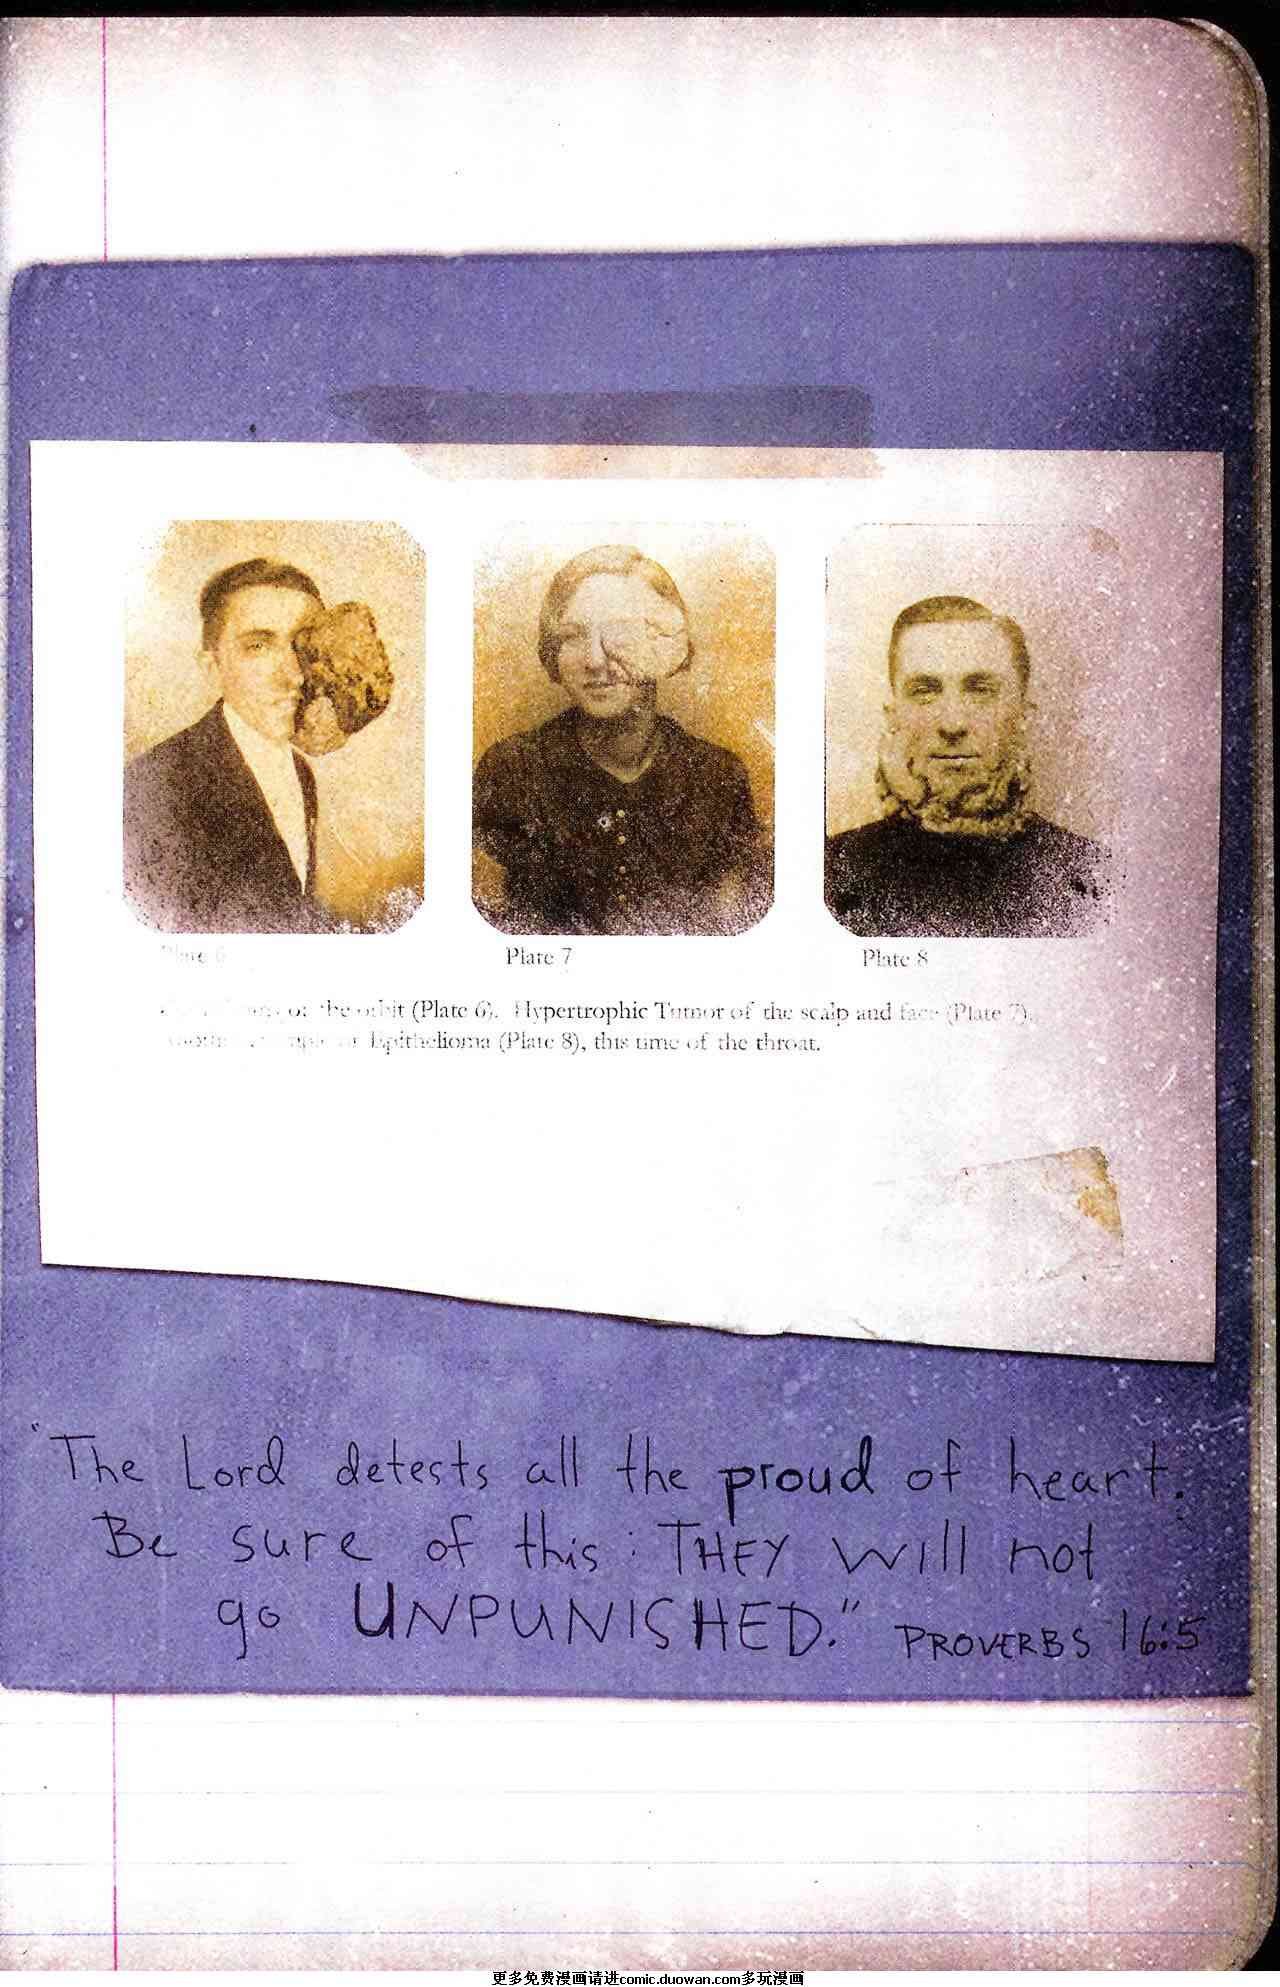 Plate 6
Plate 7
Plate 8
of the orbit (Plate 6). Hypertrophic Tumor of the scalp and face (Plate 7).
Epithelioma (Plate 8), this time of the throat.
"The Lord detests all the proud of heart.
Be sure of this: THEY will not
go UNPUNISHED." PROVERBS 16:5
更多免费漫画请进comic.duowan.com多玩漫画